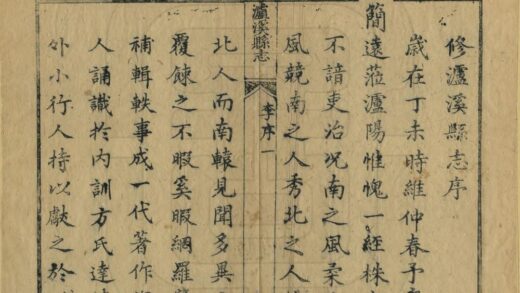 修瀘溪縣志序
歲在丁未時維仲春予
簡遠蒞瀘陽惟愧一經株
不諳吏治況南之風柔
風競南之人秀北之人
瀘溪縣志
李序 一
北人而南轅見聞多異
覆餗之不暇奚暇網羅
補輯軼事成一代著作
人誦識於內訓方氏達
外小行人持以獻之於